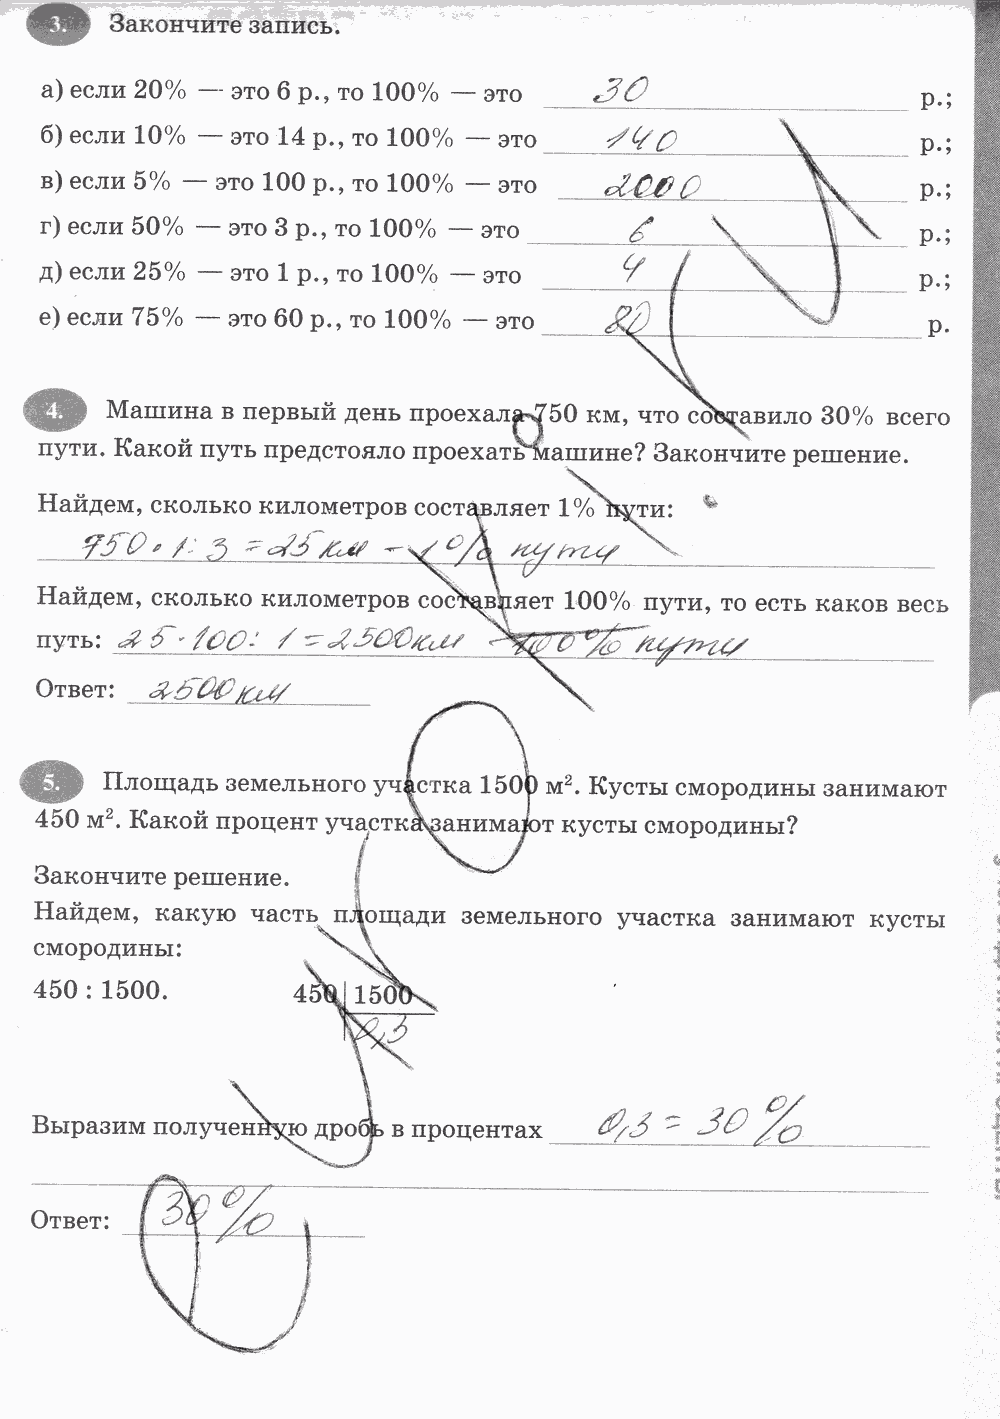 3. Закончите запись.
а) если 20% — это 6 р., то 100% — это 30 р.;
б) если 10% — это 14 р., то 100% — это 140 р.;
в) если 5% — это 100 р., то 100% — это 2000 р.;
г) если 50% — это 3 р., то 100% — это 6 р.;
д) если 25% — это 1 р., то 100% — это 4 р.;
е) если 75% — это 60 р., то 100% — это 80 р.
4. Машина в первый день проехала 750 км, что составило 30% всего
пути. Какой путь предстояло проехать машине? Закончите решение.
Найдем, сколько километров составляет 1% пути:
750 · 1 : 3 = 25 км – 1% пути
Найдем, сколько километров составляет 100% пути, то есть каков весь
путь: 25 · 100 : 1 = 2500 км – 100% пути
Ответ: 2500 км
5. Площадь земельного участка 1500 м². Кусты смородины занимают
450 м². Какой процент участка занимают кусты смородины?
Закончите решение.
Найдем, какую часть площади земельного участка занимают кусты
смородины:
450 : 1500. 450 1500
0,3
Выразим полученную дробь в процентах 0,3 = 30%
Ответ: 30%